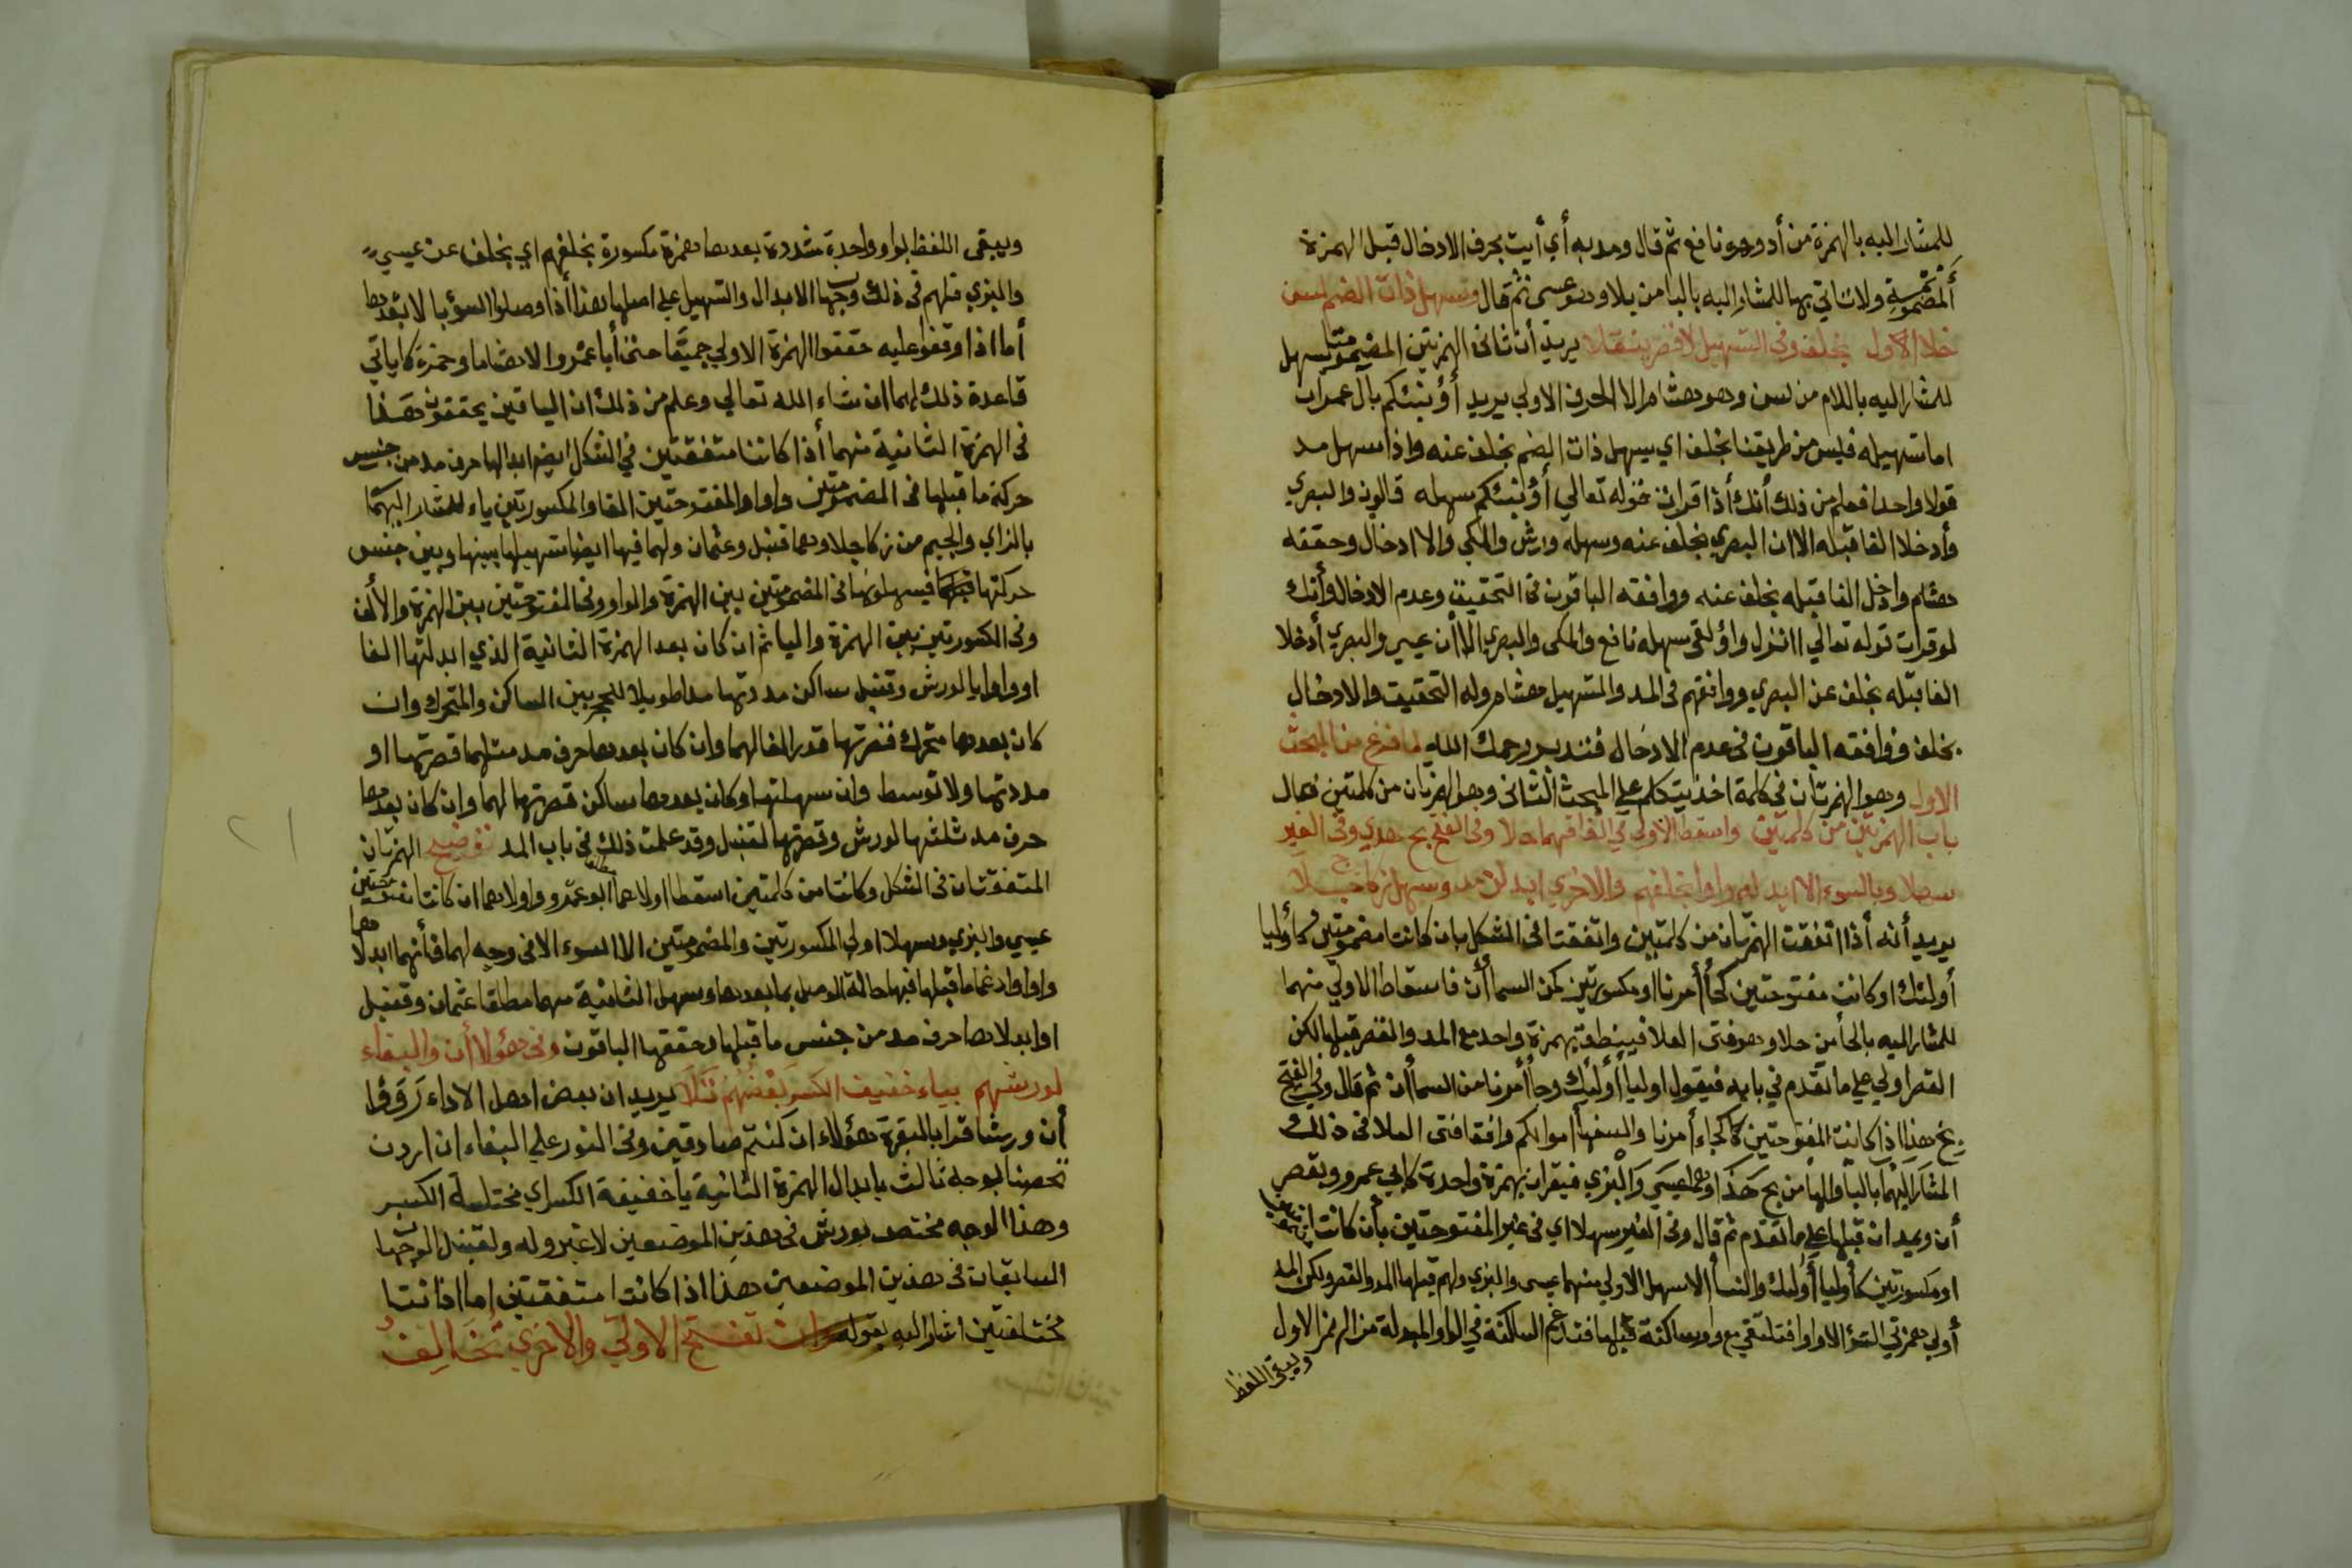 للمشار اليه بالهمزة من أد وهو نافع ثم قال ومد به أي أيت بحرف الادخال قبل الهمزة
المضمومة ولا تاتي بها للمشار اليه باليا من يلا وهو عيسى ثم قال وتسهيل ذات الضم لسن
خلا الاول بخلف وفي التسهيل لا قصر ينقلا يريد أن ثاني الهمزتين المضمومة يسهل
للمشار اليه باللام من لسن وهو هشام الا الحرف الاول يريد أؤنبئكم بآل عمران
اما تسهيله فليس من طريقنا بخلف اي يسهل ذات الضم بخلف عنه واذا سهل مد
قولا واحدا فعلم من ذلك أنك أذا قرات نحو قوله تعالى أؤنبئكم سهله قالون والبصري
وأدخلا الفا قبله الا ان البصري بخلف عنه وسهله ورش والمكي والا ادخال وحققه
هشام وادخل الفا قبله بخلف عنه ووافقه الباقون في التحقيق وعدم الادخال وأنك
لو قرات قوله تعالى اانزل واؤلقى سهله نافع والمكى والبصري الا أن عيسى والبصري أدخلا
الفا قبله بخلف عن البصري ووافقهم فى المد والتسهيل هشام وله التحقيق والادخال
بخلف ووافقه الباقون فى عدم الادخال فتدبر يرحمك الله لما فرغ من المبحث
الاول وهو الهمزتان في كلمة اخذ يتكلم على المبحث الثانى وهو الهمزتان من كلمتين فقال
باب الهمزتين من كلمتين واسقط الاولى في اتفاقهما حلا وفى الفتح بح هدي وفي الغير
سهلا وبالسوء الا ابدله واوا بخلفهم والاخرى ابدلن مد وسهل زكا جلا
يريد أنه أذا اتفقت الهمزتان من كلمتين واتفقتا فى الشكل بان كانتا مضمومتين كأوليا
أولئك او كانت مفتوحتين كجأ أمرنا او مكسورتين كمن السما أن فاسقاط الاولى منهما
للمشار اليه بالحا من حلا وهو فتى العلا فينطق بهمزة واحد مع المد والقصر قبلها لكن
القصر اولي على ما تقدم في بابه فيقول اوليا أولئك وجأ أمرنا من السما أن ثم قال وفي الفتح
بح هذا اذا كانت المفتوحتين كجاء أمرنا والسفهأ اموالكم وافقا فتى العلا فى ذلك
المشار اليهما بالبا والها من بح هدا وهما عيسى والبزي فيقران بهمزة واحدة كابي عمرو ويقصر
أن ويمدان قبلها على ما تقدم ثم قال وفى الغير سهلا اي فى غير المفتوحتين بأن كانت
او مكسورتين كأوليا أولئك والنسأ الا سهل الاولي منهما عيسى والبزي ولهم قبلها المد والقصر ولكن المد
أولي همزتي السوء الا واوا فتلتقي مع واو ساكنة قبلها فتدغم الساكنة في الواو المبدلة من الهمز الاول
ويبقى اللفظ
ويبقى اللفظ بواو واحدة مشددة بعدها همزة مكسورة بخلفهم اي بخلف عن عيسى
والبزي فلهم فى ذلك وجها الابدال والتسهيل على اصلها هذا أذا وصلوا السؤ بالا بعدها
أما اذا وقفوا عليه حققوا الهمزة الاولي جميعًا حتى أبا عمرو الا هشاما وحمزة كما ياتي
قاعدة ذلك لهما ان شاء الله تعالى وعلم من ذلك ان الباقين يحققون هذا
فى الهمزة الثانية منهما أذا كانتا متفقتين في الشكل ابدالها حرف مد من جنس
حركة ما قبلها فى المضمومتين واوا والمفتوحتين الفا والمكسورتين ياء للمشار اليهما
بالزاي والجيم من زكا جلا وهما قنبل وعثمان ولهما فيها ايضا تسهيلها بينها وبين جنس
حركتها فيسهلونها فى المضمومتين بين الهمزة والواو وفى المفتوحتين بين الهمزة والألف
وفى المكسورتين بين الهمزة واليا ثم ان كان بعد الهمزة الثانية الذي ابدلتها الفا
او واوا يا لورش وقنبل ساكن مددتها مدا طويلا للحجز بين الساكن والمتحرك وان
كان بعدها متحرك قصرتها قدر الفا لهما وان كان بعدها حرف مد مثلهما قصرتها او
مددتها ولا توسط وان سهلتها وكان بعدها ساكن قصرتها لهما وان كان بعدها
حرف مد ثلثتها لورش وقصرتها لقنبل وقد علمت ذلك فى باب المد توضيح الهمزتان
المتفقتان فى الشكل وكانتا من كلمتين اسقط اولاهما ابو عمرو واولاهما ان كانتا مفتوحتين
عيسى والبزي وسهلا اولي المكسورتين والمضمومتين الا السوء الا فى وجه لهما فأنهما ابدلاها
واوا وادغما ما قبلها فيها حالة الوصل بما بعدها وسهل الثانية منهما مطلقا عثمان وقنبل
او ابدلاها حرف مد من جنس ما قبلها وحققها الباقون وفى هؤلا أن والبغاء
لورشهم بياء خفيف الكسر بعضهم تلا يريد ان بعض اهل الاداء رووا
أن ورشا قرا بالبقرة هؤلاء ان كنتم صادقين وفى النور على البغاء ان اردن
تحصنا بوجه ثالث بابدال الهمزة الثانية يا خفيفة الكسر اي مختلسة الكسر
وهذا الوجه مختص بورش فى هذين الموضعين لا غير وله ولقنبل الوجها
السابقان فى هذين الموضعين هذا اذا كانتا متفقتين اما اذا كانتا
مختلفتين اشار اليه بقوله وان تفتح الاولى والاخرى تخالف